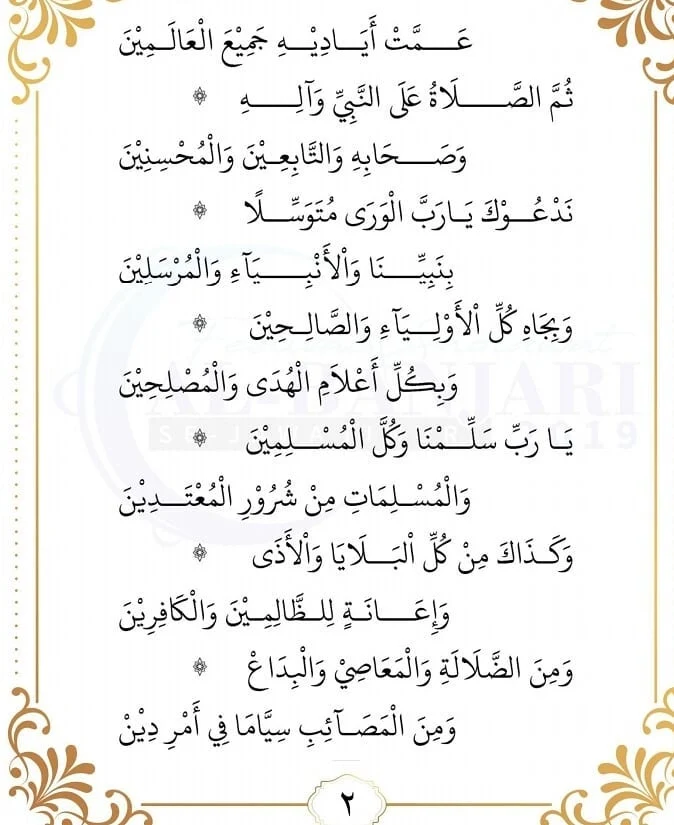 عَمَّتْ أَيَادِيْهِ جَمِيْعَ الْعَالَمِيْنَ
ثُمَّ الصَّلَاةُ عَلَى النَّبِيِّ وَآلِهِ ۞
وَصَحَابِهِ وَالتَّابِعِيْنَ وَالْمُحْسِنِيْنَ
نَدْعُوْكَ يَارَبَّ الْوَرَى مُتَوَسِّلًا ۞
بِنَبِيِّنَا وَالْأَنْبِيَآءِ وَالْمُرْسَلِيْنَ
وَبِجَاهِ كُلِّ الْأَوْلِيَآءِ وَالصَّالِحِيْنَ ۞
وَبِكُلِّ أَعْلَامِ الْهُدَى وَالْمُصْلِحِيْنَ
AL-BANJARI
يَا رَبِّ سَلِّمْنَا وَكُلَّ الْمُسْلِمِيْنَ ۞
وَالْمُسْلِمَاتِ مِنْ شُرُوْرِ الْمُعْتَدِيْنَ
وَكَذَاكَ مِنْ كُلِّ الْبَلَايَا وَالْأَذَى ۞
وَإِعَانَةٍ لِلظَّالِمِيْنَ وَالْكَافِرِيْنَ
وَمِنَ الضَّلَالَةِ وَالْمَعَاصِيْ وَالْبِدَاعْ ۞
وَمِنَ الْمَصَآئِبِ سِيَّامَا فِي أَمْرِ دِيْنْ
٢